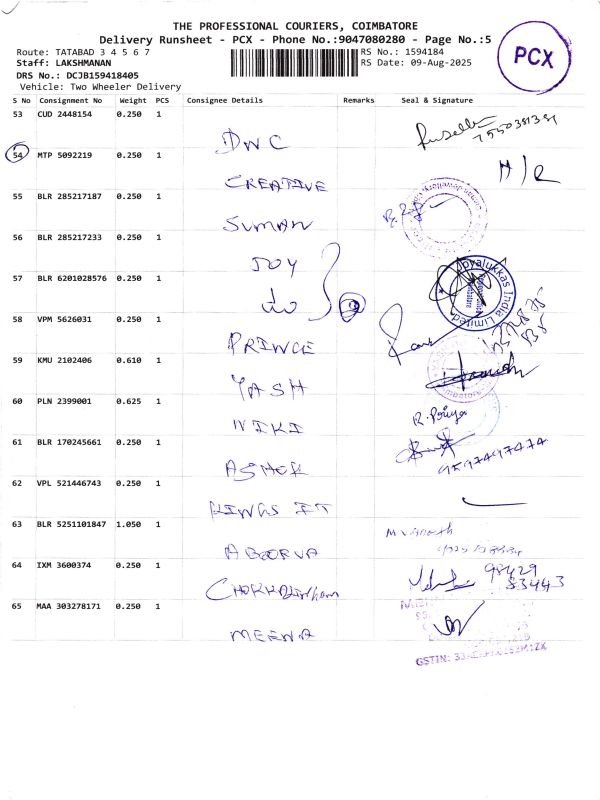 THE PROFESSIONAL COURIERS, COIMBATORE
Delivery Runsheet - PCX - Phone No.:9047080280 - Page No.:5
Route: TATABAD 3 4 5 6 7
RS No.: 1594184
Staff: LAKSHMANAN
RS Date: 09-Aug-2025
DRS No.: DCJB159418405
Vehicle: Two Wheeler Delivery
PCX
S No Consignment No Weight PCS Consignee Details Remarks Seal & Signature
53 CUD 2448154 0.250 1
DWC
54 MTP 5092219 0.250 1
CREATIVE
55 BLR 285217187 0.250 1
SUMAN
56 BLR 285217233 0.250 1
JOY
57 BLR 6201028576 0.250 1
do
2
Joyalukkas India Limited
58 VPM 5626031 0.250 1
PRINCE
59 KMU 2102406 0.610 1
YASH
60 PLN 2399001 0.625 1
NIKI
R. Priya
61 BLR 170245661 0.250 1
ASHOK
9597497474
62 VPL 521446743 0.250 1
KINGS IT
63 BLR 5251101847 1.050 1
ABOORVA
64 IXM 3600374 0.250 1
98429
83443
65 MAA 303278171 0.250 1
MEENA
GSTIN: